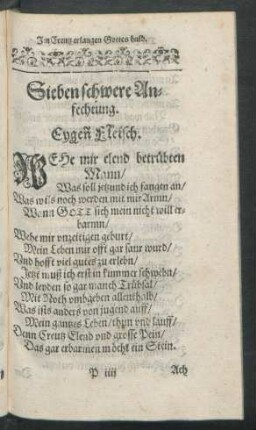 Im Creutz erlangen Gottes huld.
Sieben schwere An-
fechtung.
Eygeñ Fleisch.
WEHe mir elend betrübten
Mann/
Was soll jetzund ich fangen an/
Was wils noch werden mit mir Armn/
Wann GOTT sich mein nicht will er-
barmn/
Wehe mir unzeitigen geburt/
Mein Leben mir offt gar saur wurd/
Und hofft viel gutes zu erlebn/
Jetzt muß ich erst in kummer schwebn/
Und leyden so gar manch Trübsal/
Mit Noth umbgeben allenthalb/
Was ists anders von jugend auff/
Mein gantzes Leben/ thun und lauff/
Denn Creutz Elend und grosse Pein/
Das gar erbarmen möcht ein Stein.
P iiij Ach